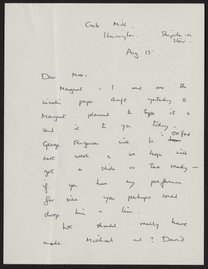 Crab Mill
Ilmington
Shipston-on
Stour
Aug 15
Dear Max,
Margaret & I were on the
paper draft yesterday &
Margaret planned to type it &
send it to you today.
George Ferguson will be in OXFORD
next week & we hope will
get a slide or two ready —
if you have any preference
for size you perhaps could
drop him a line.
We should really have
made Michael and David